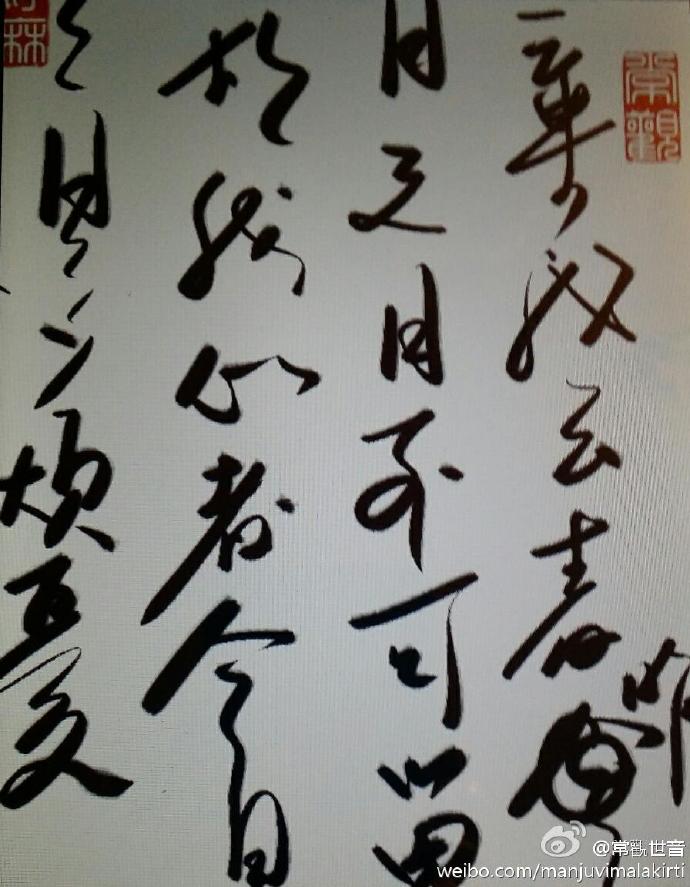 棄我去者昨
日之日不可留
亂我心者今日
之日多煩憂
常觀
weibo.com/manjuvimalakirti